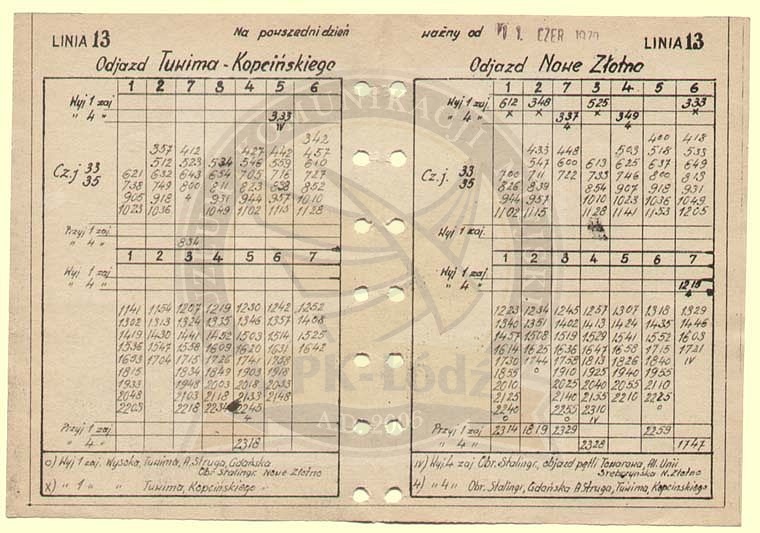 LINIA 13
Na powszedni dzień
Odjazd Tuwima - Kopcińskiego
1 2 7 3 4 5 6
Wyj 1 zaj
" 4 " 333
IV
342
357 412 427 442 457
512 523 534 546 559 610
Cz.j. 33
35
621 632 643 654 705 716 727
738 749 800 811 823 838 852
905 918 4 931 944 957 1010
1023 1036 1049 1102 1115 1128
Przyj 1 zaj.
" 4 " 834
1 2 3 4 5 6 7
Wyj 1 zaj
" 4 "
1141 1154 1207 1219 1230 1242 1252
1302 1313 1324 1335 1346 1357 1408
1419 1430 1441 1452 1503 1514 1525
1536 1547 1558 1609 1620 1631 1642
1653 1704 1715 1726 1741 1758
1815 1834 1849 1903 1918
1933 1948 2003 2018 2033
2048 2103 2118 2133 2148
2203 2218 2234 2245
4
Przyj 1 zaj
" 4 " 2318
o) Wyj 1 zaj. Wysoka, Tuwima, A. Struga, Gdańska
Obr. Stalingr. Nowe Złotno
x) " 1 " " Tuwima, Kopcińskiego
ważny od 1. CZER
LINIA 13
Odjazd Nowe Złotno
1 2 7 3 4 5 6
Wyj 1 zaj 612 348 525 333
x x x x
" 4 " 337 349
4 4
400 418
433 448 503 518 533
547 600 613 625 637 649
Cz.j. 33
35
700 711 722 733 746 800 813
826 839 854 907 918 931
944 957 1010 1023 1036 1049
1102 1115 1128 1141 1153 1205
Wyj 1 zaj
1 2 3 4 5 6 7
Wyj 1 zaj
" 4 " 1218
4
1223 1234 1245 1257 1307 1318 1329
1340 1351 1402 1413 1424 1435 1446
1457 1508 1519 1529 1541 1552 1603
1614 1625 1636 1647 1658 1715 1731
1730 1744 1758 1811 1826 1840 IV
1855 o 1910 1925 1940 1955
2010 2025 2040 2055 2110
2125 2140 2155 2210 2225
2240 2255 2310 o
o o IV
Przyj 1 zaj 2314 1819 2329 2259
" 4 " 2328 1747
IV) Wyj. 4 zaj Obr. Stalingr, objazd pętli Towarowa, Al. Unii
Srebrzyńska N. Złotno
4) " 4 " Obr. Stalingr, Gdańska A Struga, Tuwima, Kopcińskiego
KOMUNIKACJI
PK-Łódź
A.D. 2006